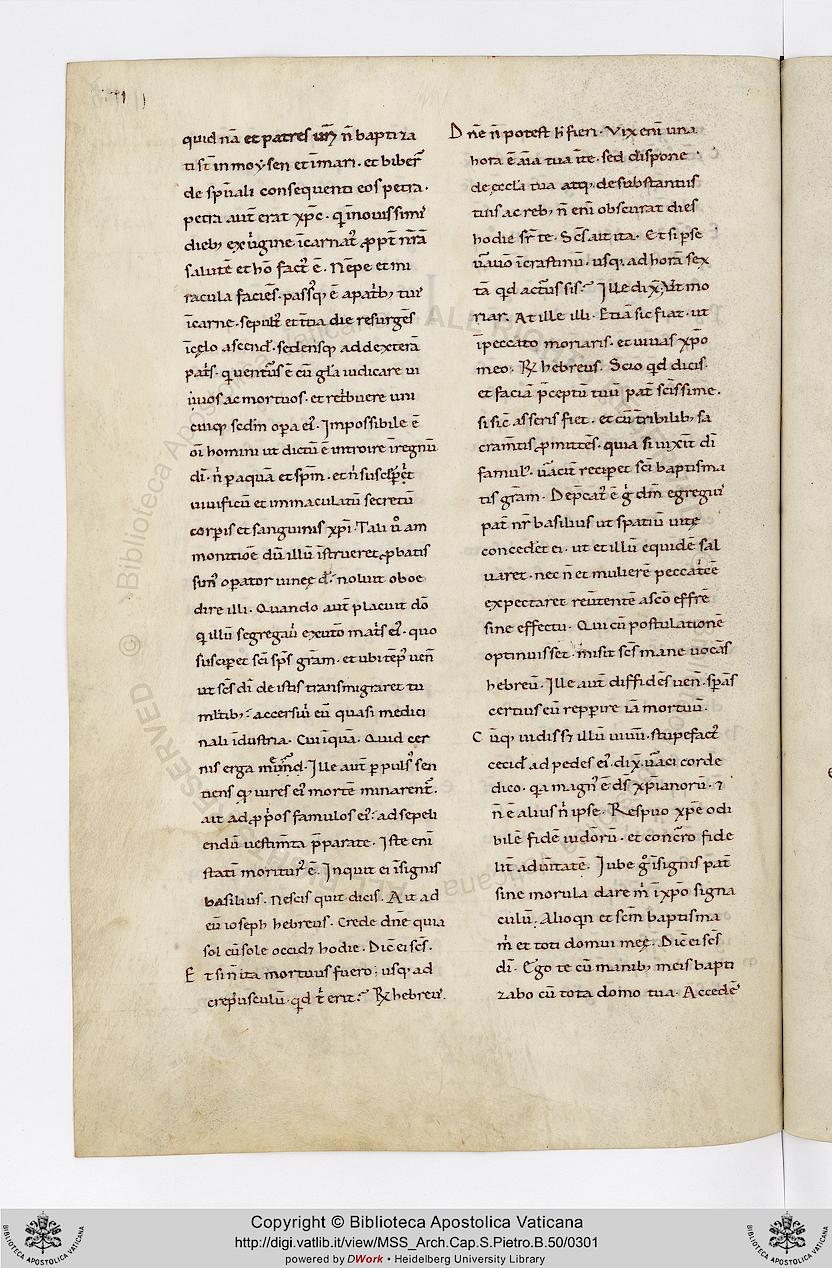 quid nā et patres ūr̄i n̄ baptiza
ti st̄ in moysen et ī mari. et biber̄
de sp̄uali consequenti eos petra.
petra aut̄ erat xp̄c. q ī nouissimi
dieb; ex uirgine īcarnat̄ ꝓpt̄ nr̄ā
salutē et hō fact̄ ē. Nēpe et mi
racula faciēs. passusq; ē a patrib; tuis
ī carne. sepult̄ et t̄tia die resurgēs
ī cęlo ascend̄. sedensq; ad dexterā
pat̄s. q uenturus ē cū gl̄a iudicare ui
uos ac mortuos. et retribuere uni
cuiq; scdm̄ opa ei'. Impossibile ē
oī homini ut dictū ē introire ī regnū
di. n̄ p aquā et sp̄m. et n̄ susceperit
uiuificū et immaculatū secretū
corpis et sanguinis xp̄i. Tali ū am
monitioē dū illū īstrueret ꝓbatis
sim' opator uineę d̄i noluit oboe
dire illi. Quando aut̄ placuit dō
q illū segregauit ex utō mat̄s ei'. quo
suscipet sc̄i sp̄s gr̄am. et ubi tēp' uen̄
ut sc̄s di de istis transmigraret tu
mltib; accersiuit eū quasi medici
nali īdustria. Cui īquā. Quid cer
nis erga mund̄. Ille aut̄ p pulsū sen
tiens q uires ei' mortē minarent̄.
ait ad ꝓp̄os famulos ei' ad sepeli
endū uestim̄ta p̄parate. Iste enī
statī moritur' ē. Inquit ei īsignis
basilius. Nescis quit dicis. Ait ad
eū ioseph hebreus. Crede dn̄e quia
sol cū sole occid; hodie. Dic̄ ei sc̄s.
Et si n̄ ita mortuus fuero; usq; ad
crepusculū. qd t̄ erit. R̄x hebreu'.
Dn̄e n̄ potest h fieri. Vix enī una
hora ē aīa tua ī te. sed dispone
de ęccl̄a tua atq; de substantiis
tuis ac reb; n̄ enī obscurat dies
hodie sr̄ te. Sc̄s ait ita. Et si pse
uerauero ī crastinū. usq; ad horā sex
tā qd acturus sis. Ille dix̄. Vt mo
riar. At ille illi. Etiā sic fiat. ut
ī peccato moriaris. et uiuas xp̄o
meo. R̄x hebreus. Scio qd dicis.
et faciā p̄ceptū tuū pat̄ sc̄issime.
si sic asseris fiet. et cū tribilib; sa
cram̄tis ꝓmittēs. quia si uixit di
famul'. uaciter recipet sc̄i baptisma
tis gr̄am. Dep̄cat' ē g dm̄ egregiu'
pat̄ nr̄ basilius ut spatiū uitę
concederet ei. ut et illū equidē sal
uaret. nec n̄ et mulierē peccatricē
expectaret reuertentē a scō effrē
sine effectu. Qui cū postulationē
optinuisset. misit sc̄s mane uocās
hebreū. Ille aut̄ diffidēs uen̄. sperās
certius eū repperire iā mortuū.
Cūq; uidiss; illū uiuū. stupefact'
cecid̄ ad pedes ei'. dix̄. uraci corde
dico. qa magn' ē dс̄ xp̄ianorū. 7
n̄ ē alius n̄ ipse. Respuo xp̄e odi
bilē fidē iudorū. et concurro fide
lit̄ ad ueritatē. Iube g īsignis pat̄
sine morula dare m̄ ī xp̄o signa
culū. Alioqn et scm̄ baptisma
m̄ et toti domui meę. Dic̄ ei sc̄s
di. Ego te cū manib; meis bapti
zabo cū tota domo tua. Accedēs
ALL RIGHTS RESERVED
© Biblioteca Apostolica Vaticana
Copyright © Biblioteca Apostolica Vaticana
http://digi.vatlib.it/view/MSS_Arch.Cap.S.Pietro.B.50/0301
powered by DWork • Heidelberg University Library
BIBLIOTECA APOSTOLICA VATICANA
BIBLIOTECA APOSTOLICA VATICANA